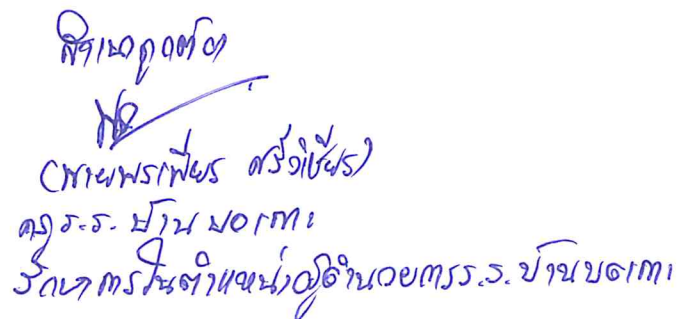 สำเนาถูกต้อง
(นายพรเพียร ศรีวิเชียร)
ครู ร.ร. บ้านบอเกาะ
รักษาการในตำแหน่งผู้อำนวยการ ร.ร. บ้านบอเกาะ